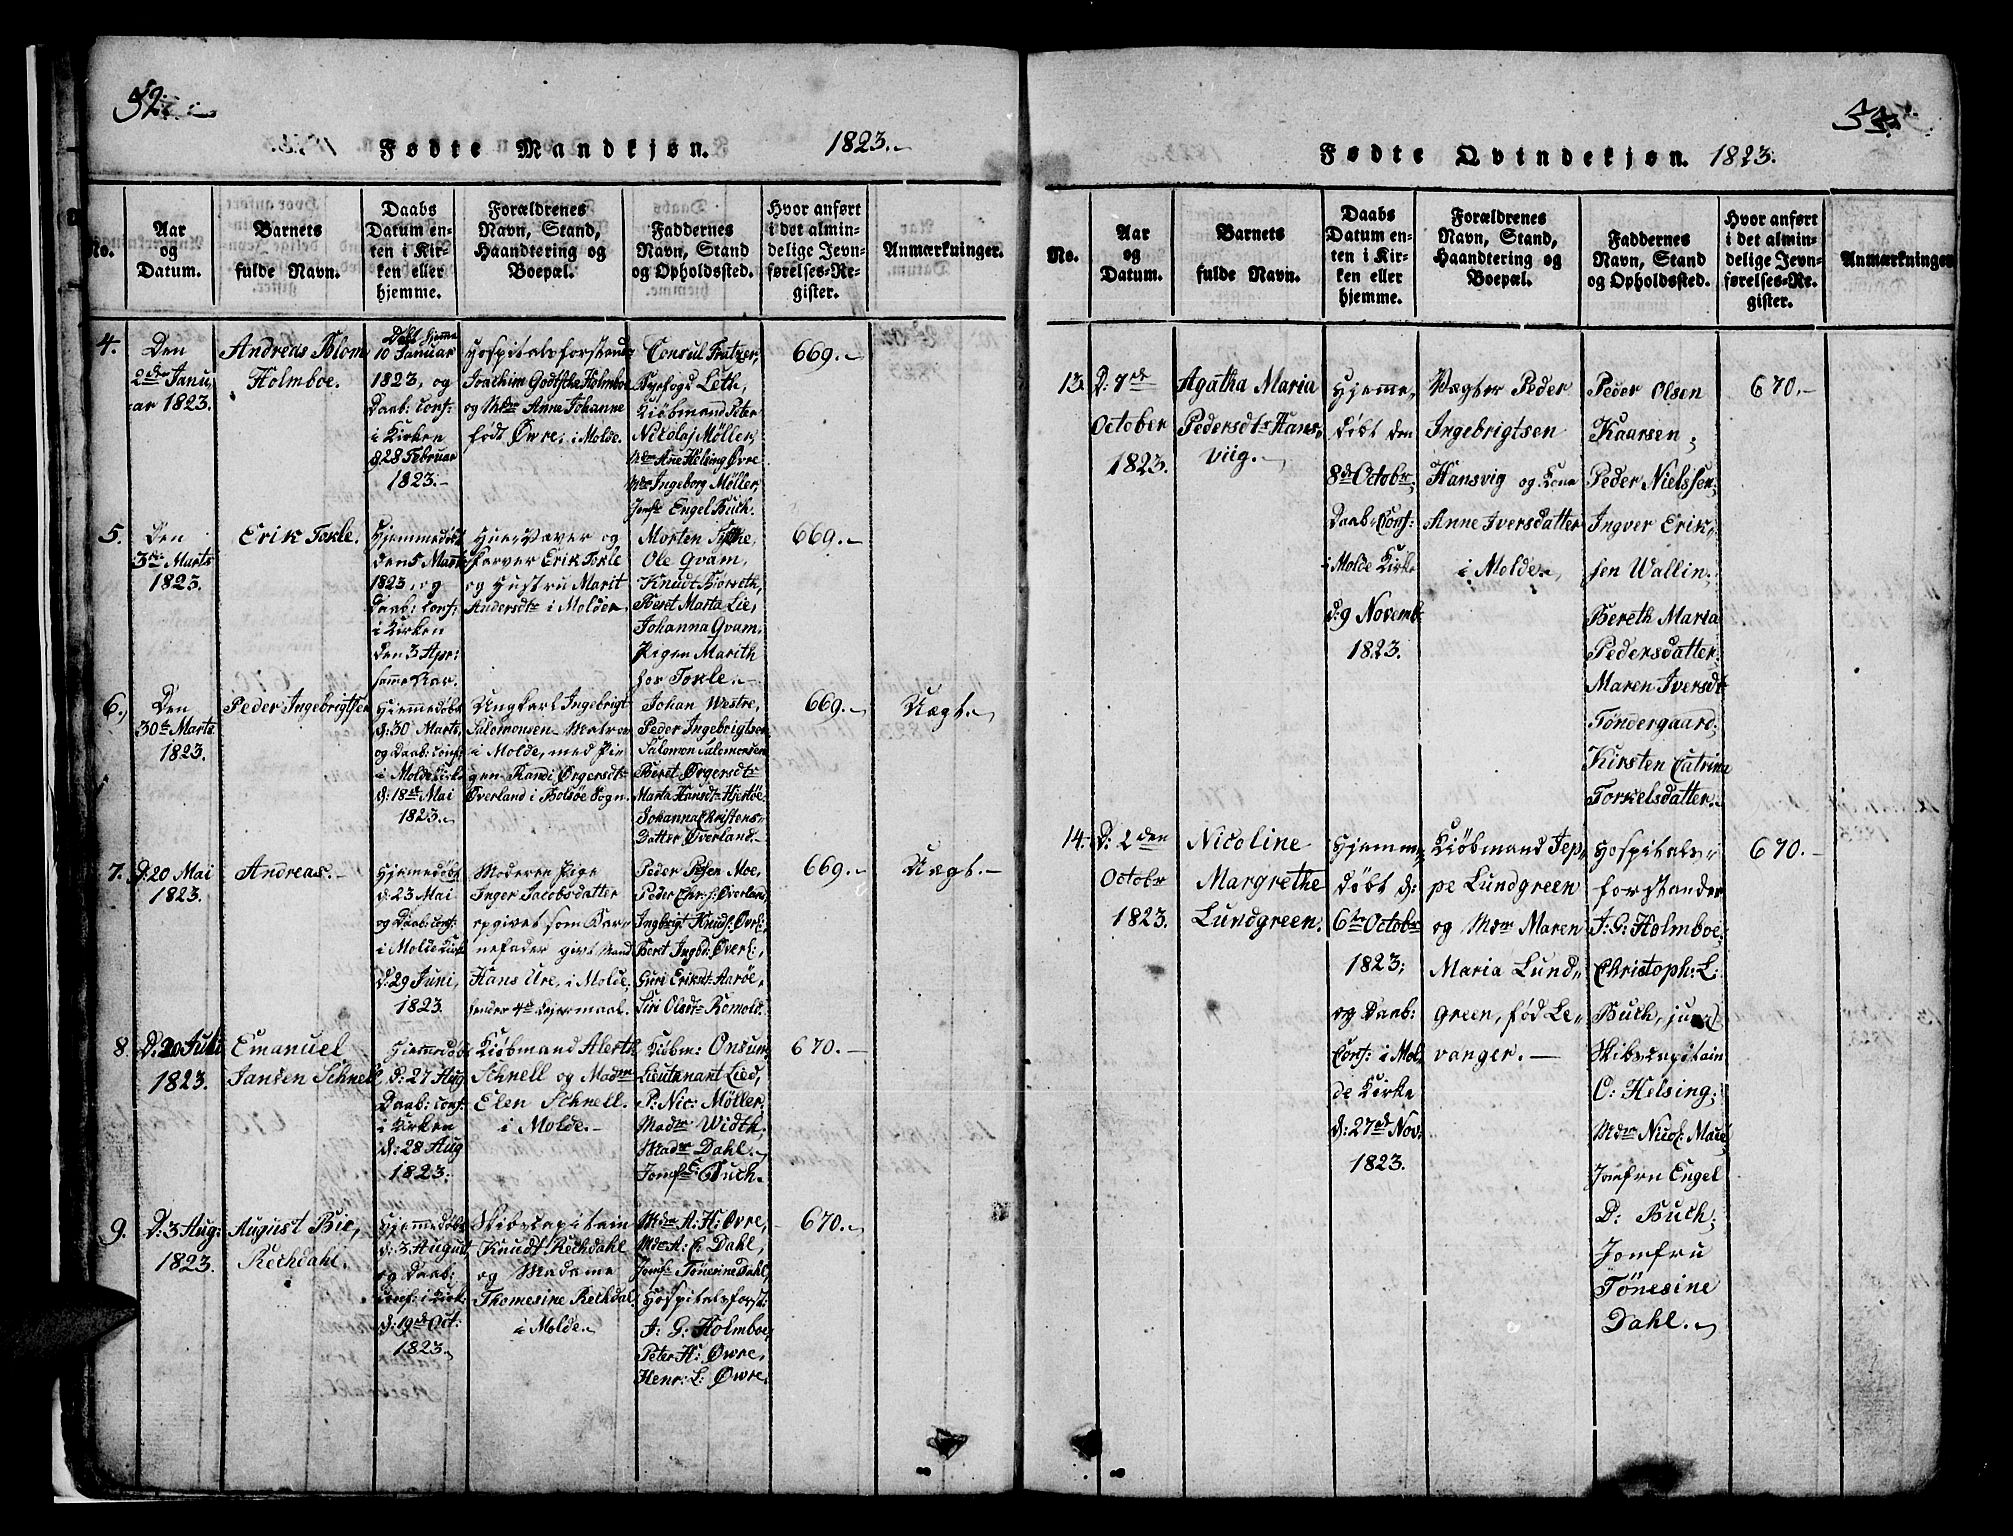 52.
Fødte Mandkjøn. 1823.
No.
Aar
og
Datum.
Barnets
fulde Navn.
Daabs
Datum en-
ten i Kir-
ken eller
hjemme.
Forældrenes
Navn, Stand,
Haandtering og
Boepæl.
Faddernes
Navn, Stand
og Opholdssted.
Hvor anført
i det almin-
delige Jevn-
førelses-Re-
gister.
Anmærkninger.
4.
Den
2den Janu,
ar 1823.
Andreas Blom
Holmboe.
Döbt hjemme
10 Januar
1823, og
Daab: Conf:
i Kirken
d. 28 Februar
1823.
Hospitalsforstander
Joachim Godtfche Holmboe
og Mdm Anne Johanne
født Øvre, i Molde.
Consul Fratzer,
Byefogd Leth,
Kiøbmand Peter
Nicolaj Møller,
Mdm Ane Helsing Øvre
Mdm Ingeborg Møller,
Jomf. Engel Buch.
669.
5.
Den
3de Marts
1823.
Erik Tokle.
Hjemmedöbt
den 5 Marts
1823, og
Daab: Conf:
i Kirken
den 3 Apr:
samme Aar.
Huus
Farver Erik Tokle
og Hustru Marit
Andersdtr i Molde.
Morten
Ole Qvam,
Knudt
Beret Marta Lie,
Johanna Qvam.
Pigen Marith
hos Tokle.
669.
6.
Den
30te Marts
1823.
Peder Ingebrigtsen
Hjemmedöbt
d: 30 Marts,
og Daab: Conf:
i Molde Kirke
d: 18de Mai
1823.
Ungkarl Ingebrigt
Salomonsen Matros
i Molde, med Pi-
gen Randi Ørgersdtr
Øverland i Bolsøe Sogn.
Johan Westre,
Peder Ingebrigtsen
Salomon Salomonsen
Beret Ørgersdtr
Marta Hansdtr Hjertøe
Johanna Christens-
datter Øverland.
669.
Uægt.
7.
D: 20 Mai
1823.
Andreas.
Hjemmedöbt
d: 23 Mai
og Daab: Conf:
i Molde Kirke
d: 29 Juni,
1823.
Moderen Pige
Inger Jacobsdatter
opgivet som Bar-
nefader givt Mand
Hans Ure, i Molde,
hendes 4de Leiermaal.
Peder Moe,
Peder Chr: Øverland,
Ingbrigt Knuds: Øverl:,
Beret Ingbd: Øverl:,
Guri Eriksdt: Aarøe,
Siri Olsdtr Romold.
669.
Uægt.
8.
D: 20 Juli
1823.
Emanuel
Jansen Schnell
Hjemmedöbt
d: 27 Aug
Daab: Conf:
i Kirken
d: 28 Aug
1823.
Kiøbmand Alerth
Schnell og Madme
Elen Schnell.
i Molde.
Kiøbm: Onsum
Lieutenant Lied,
P: Nic: Møller.
Madm Width,
Madm Dahl.
Jomf: Buch.
670.
9.
D: 3 Aug:
1823.
August Bie,
Rechdahl.
Hjemmedöbt
d: 3 August
og Daab:
Conf: i Kirk:
d: 19de Oct:
1823.
Skibscapitain
Knudt Rechdahl
og Madame
Thomesine Rechdal
i Molde.
Mdm A: H: Øvre,
Mdm A: C: Dahl,
Jomf: Tönesine Dahl,
Hospitalsforst:
J: G: Holmboe,
Peter H: Øvre,
Henr: L: Øvre.
670.
53.
Fødte Qvindekjøn. 1823.
No.
Aar
og
Datum.
Barnets
fulde Navn.
Daabs
Datum en-
ten i Kir-
ken eller
hjemme.
Forældrenes
Navn, Stand,
Haandtering og
Boepæl.
Faddernes
Navn, Stand
og Opholdssted.
Hvor anført
i det almin-
delige Jevn-
førelses-Re-
gister.
Anmærkninger
13.
D: 7de
October
1823.
Agatha Maria
Pedersdtr Hans-
viig.
Hjemme-
döbt den
8de Octobr,
Daab: Conf:
i Molde Kirke
d: 9 Novemb:
1823.
Vægter Peder
Ingebrigtsen
Hansvig og Kone
Anne Iversdatter
i Molde.
Peder Olsen
Kaarsen,
Peder Nielssen,
Ingver Erik-
sen Wallin.
Bereth Maria
Pedersdatter,
Maren Iversdtr
Tøndergaard,
Kirsten Catrina
Torkelsdatter.
670.
14.
D: 2den
Octobr
1823.
Nicoline
Margrethe
Lundgreen.
Hjemme-
döbt d:
6te Octobr
1823;
og Daab:
Conf: i Mol-
de Kirke
d: 27de Nov:
1823.
Kiøbmand Jep-
pe Lundgreen
og Mdm Maren
Maria Lund-
green, fød Le-
vanger.
Hospitals-
forstander
J: G: Holmboe,
Christoph: L:
Buch, jun
Skibscapitain
C: Helsing,
Mdm Nicol:
Jomfru Engel
D: Buch,
Jomfru
Tönesine
Dahl.
670.